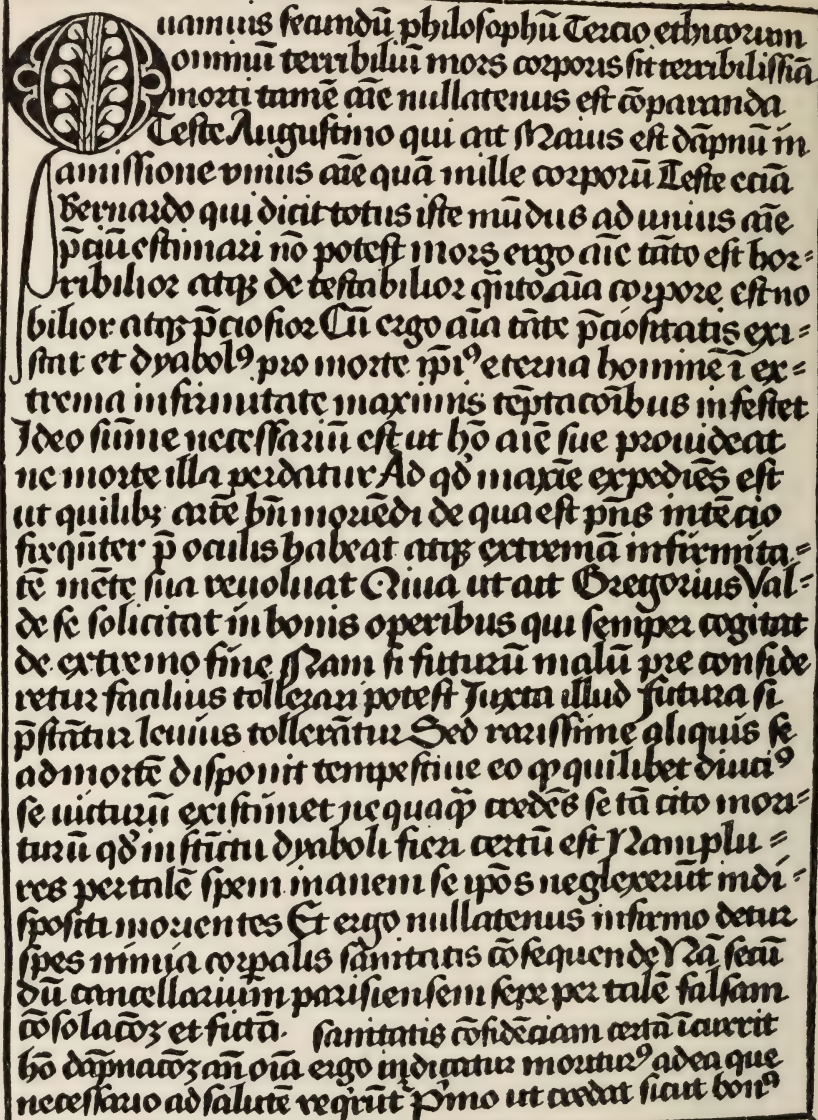 Quamuis secundū philosophū Tercio ethicorum
omniū terribiliū mors corporis sit terribilissīa
morti tamē aīe nullatenus est cōparanda
Teste Augustino qui ait Maius est dāpnū in
amissione vnius aīe quā mille corporū Teste eciā
Bernardo qui dicit totus iste mūdus ad unius aīe
p̄ciū estimari nō potest mors ergo aīe tāto est hor⸗
ribilior atqꝫ de testabilior q̄nto aīa corpore est no
bilior atqꝫ p̄ciosior Cū ergo aīa tāte p̄ciositatis exi⸗
stat et dyabolꝰ pro morte ip̄iꝰ eterna hominē ī ex⸗
trema infirmitate maximis tēptacōibus infestet
Ideo sūme necessariū est ut hō aīe sue prouideat
ne morte illa perdatur Ad qd̓ maxīe expediēs est
ut quilibꝫ artē bn̄ moriēdi de qua est pn̄s intēcio
freq̄nter p̄ oculis habeat atqꝫ extremā infirmita⸗
tē mēte sua reuoluat Quia ut ait Gregorius Val⸗
de se solicitat in bonis operibus qui semper cogitat
de extremo fine Nam si futurū malū pre conside
retur facilius tollerari potest Iuxta illud futura si
p̄stātur leuius tollerātur Sed rarissime aliquis se
ad mortē disponit tempestiue eo qꝙ quilibet diuciꝰ
se uicturū existimet nequaqꝙ credēs se tā cito mori⸗
turū qd̓ instīctu dyaboli fieri certū est Nam plu⸗
res per talē spem inanem se ip̄os neglexerūt indi⸗
spositi morientes Et ergo nullatenus infirmo detur
spes nimia corꝑalis sanitatis cōsequende Nā secū
dū cancellarium parisiensem sepe per talē falsam
cōsolacōꝫ et fictā. sanitatis cōfidēciam certā īcurrit
hō dāpnacōꝫ an̄ oīa ergo inducatur moriturꝰ ad ea que
necessario ad salutē req̄rūt P̓mo ut credat sicut bonꝰ